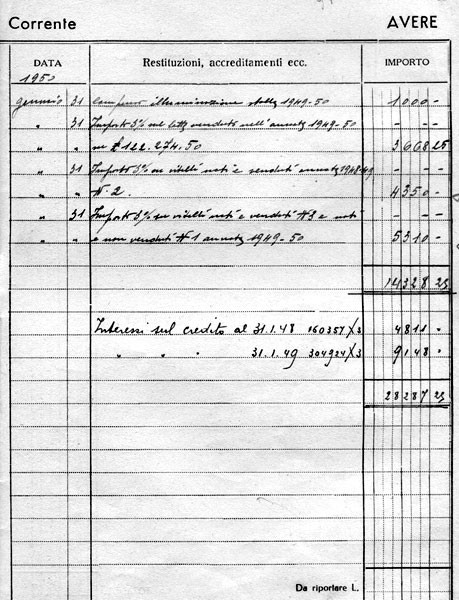 Corrente AVERE
DATA Restituzioni, accreditamenti ecc. IMPORTO
1950
gennaio 31 Compenso illuminazione stalla 1949-50 1000 -
" 31 Importo 3% sul latte venduto nell'annata 1949-50 - - -
" " su £ 122.274.50 3668 25
" 31 Importo 3% su vitelli nati e venduti annata 1948-49 - - -
" " N. 2. 4350 -
" 31 Importo 3% su vitelli nati e venduti N 3 e nati - - -
" " e non venduti N 1 annata 1949-50 5310 -
14328 25
Interessi sul credito al 31.1.48 160357 X 3 4811 "
" " " 31.1.49 304924 X 3 9148 "
28287 25
Da riportare L.